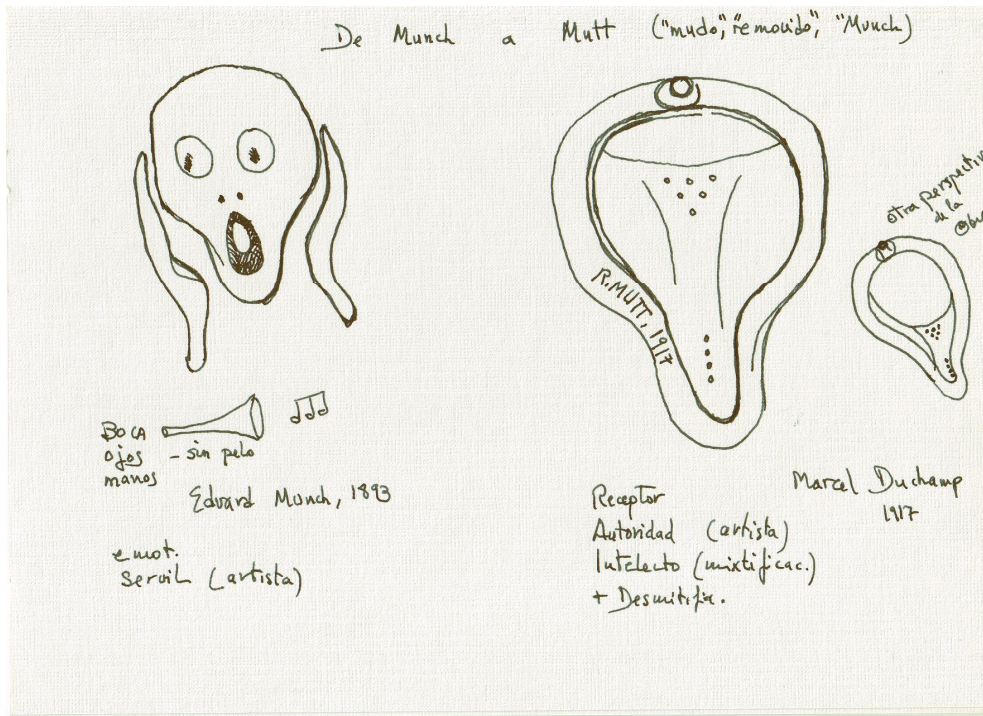 De Munch a Mutt ("mudo", "removido", "Munch")
otra perspectiva
de la
R.MUTT, 1917
BOCA
ojos - sin pelo
manos
Edvard Munch, 1893
emot.
Servil (artista)
Marcel Duchamp
1917
Receptor
Autoridad (artista)
Intelecto (mixtificac.)
+ Desmitific.